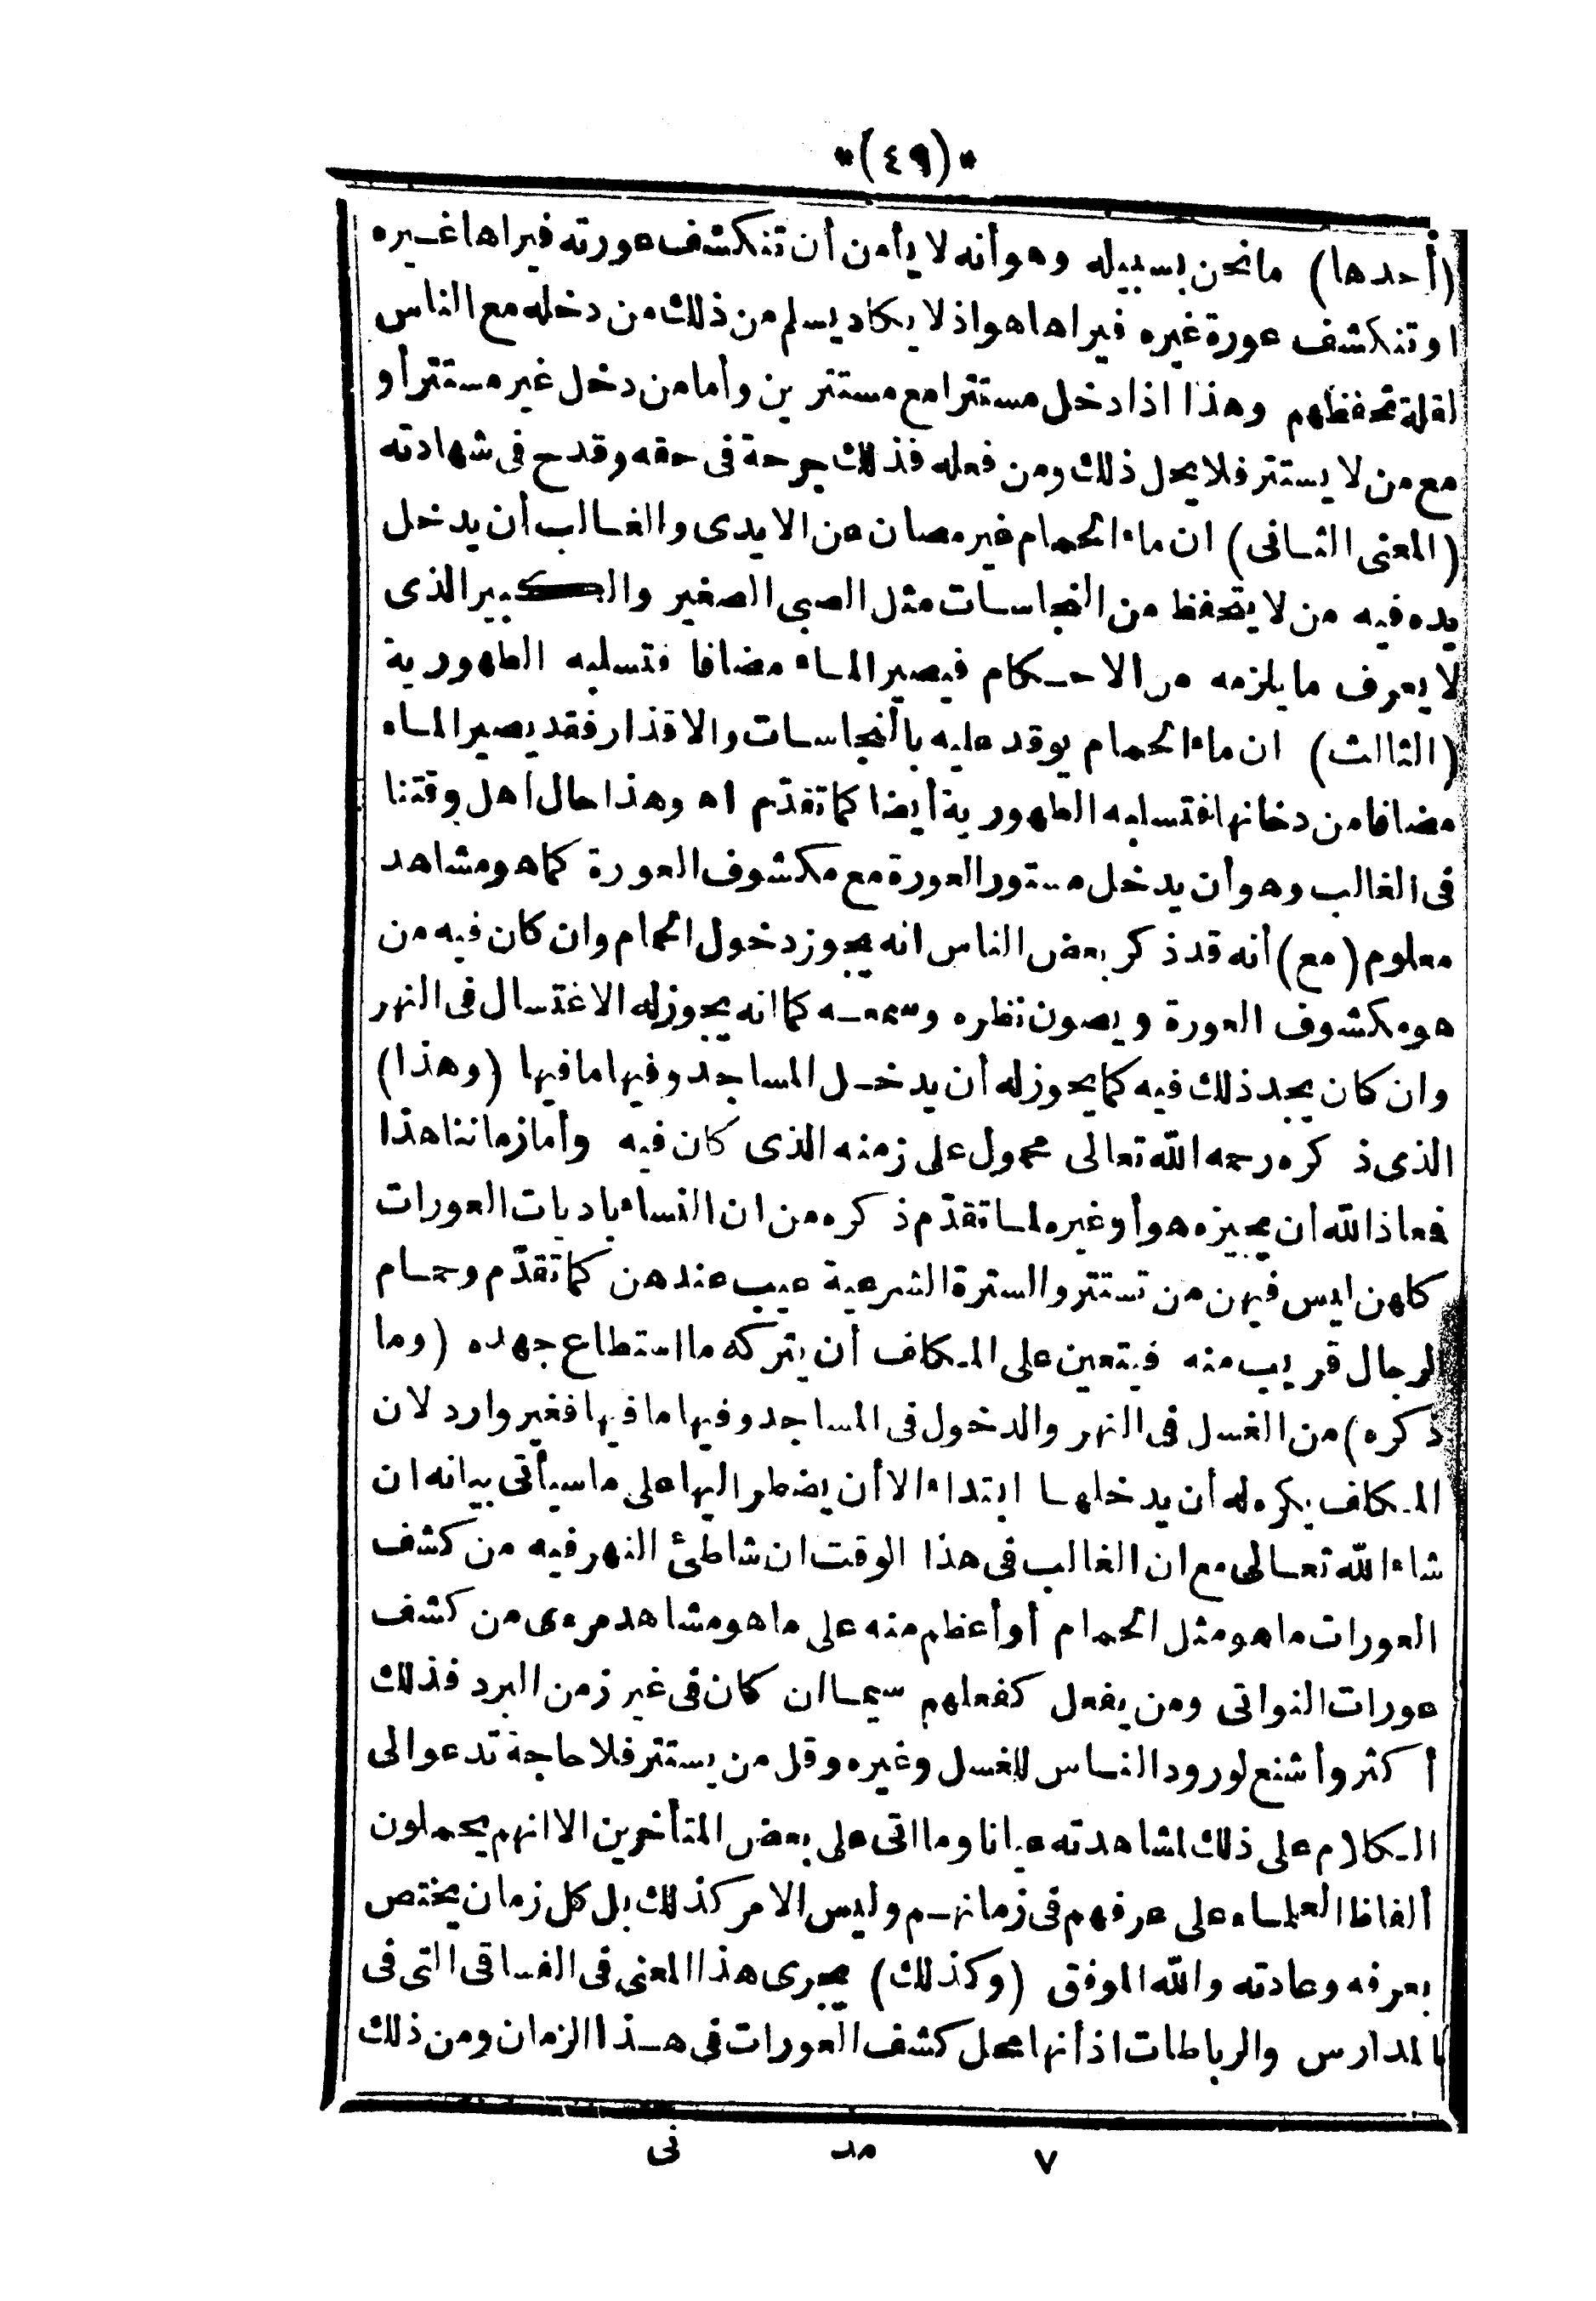 *(٤٩)*
(أحدها) مانحن بسبيله وهوأنه لا يأمن أن تنكشف عورته فيراها غيره
اوتنكشف عورة غيره فيراهاهواذلا يكاد يسلم من ذلك من دخله مع الناس
لقلة تحفظهم وهذا اذا دخل مستترا مع مستترين وأمامن دخل غير مستترأو
مع من لا يستتر فلا يحل ذلك ومن فعله فذلك جرحة فى حقه وقدح فى شهادته
(المعنى الثانى) ان ماء الحمام غير مصان عن الايدى والغالب أن يدخل
يده فيه من لا يتحفظ من النجاسات مثل الصبى الصغير والكبير الذى
لا يعرف ما يلزمه من الاحكام فيصير الماء مضافا فتسلبه الطهورية
(الثالث) ان ماء الحمام يوقد عليه بالنجاسات والاقذار فقد يصير الماء
مضافا من دخانها فتسلبه الطهورية أيضا كماتقدّم اه وهذا حال أهل وقتنا
فى الغالب وهوأن يدخل مستور العورة مع مكشوف العورة كماهومشاهد
معلوم (مع) أنه قد ذكر بعض الناس انه يجوز دخول الحمام وان كان فيه من
هو مكشوف العورة ويصون نظره وسمعه كماانه يجوزله الاغتسال فى النهر
وان كان يجد ذلك فيه كمايجوزله أن يدخل المساجد وفيها مافيها (وهذا)
الذى ذكره رحمه الله تعالى محمول على زمنه الذى كان فيه وأمازماننا هذا
فعاذ الله أن يجيزه هوأوغيره لما تقدّم ذكره من ان النساء باديات العورات
كلهن ليس فيهن من تستتر والسترة الشرعية عيب عندهن كماتقدّم وحمام
الرجال قريب منه فيتعين على المكلف أن يتركه مااستطاع جهده (وما
ذكره) من الغسل فى النهر والدخول فى المساجد وفيها مافيها فغير وارد لان
المكلف يكره له أن يدخلها ابتداء الاأن يضطر اليها على ماسيأتى بيانه ان
شاء الله تعالى مع ان الغالب فى هذا الوقت ان شاطئ النهر فيه من كشف
العورات ماهومثل الحمام أوأعظم منه على ماهومشاهد مرءى من كشف
عورات النواتى ومن يفعل كفعلهم سيماان كان فى غير زمن البرد فذلك
أكثر وأشنع لورود الناس للغسل وغيره وقل من يستتر فلا حاجة تدعوالى
الكلام على ذلك لمشاهدته عيانا وما اتى على بعض المتأخرين الاانهم يحملون
ألفاظ العلماء على عرفهم فى زمانهم وليس الامر كذلك بل كل زمان يختص
بعرفه وعادته والله الموفق (وكذلك) يجرى هذا المعنى فى الفساقى التى فى
المدارس والرباطات اذ أنها محل كشف العورات فى هذا الزمان ومن ذلك
٧ مد نى